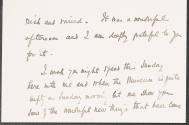 rich and varied. It was a wonderful
afternoon and I am deeply grateful to you
for it.
I wish you might spend this Sunday
here with me and when the Museum is quite
empty on Sunday morning let me show you
some of the wonderful new things that have come